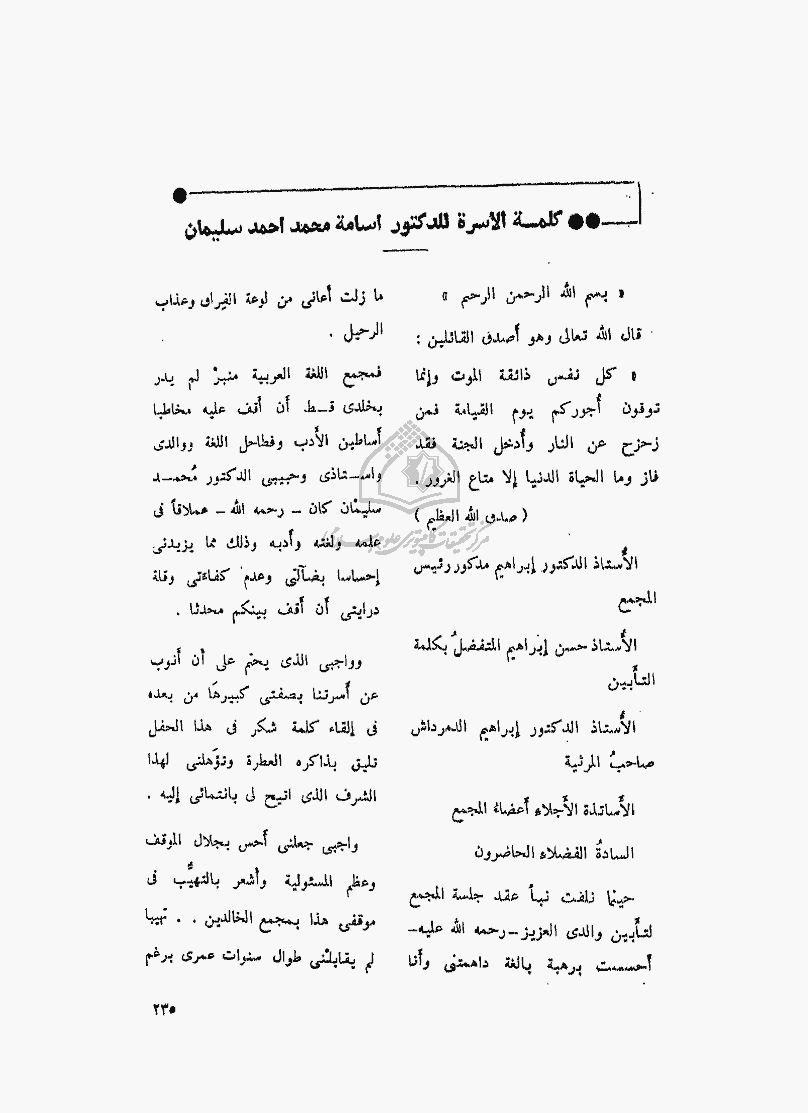 ●● كلمــة الأسرة للدكتور أسامة محمد أحمد سليمان
« بسم الله الرحمن الرحيم »
قال الله تعالى وهو أصدق القائلين :
« كل نفس ذائقة الموت وإنما
توفون أُجوركم يوم القيامة فمن
زحزح عن النار وأُدخل الجنة فقد
فاز وما الحياة الدنيا إلا متاع الغرور .
( صدق الله العظيم )
الأُستاذ الدكتور إبراهيم مدكور رئيس
المجمع
الأُستاذ حسن إبراهيم المتفضلُ بكلمة
التأبين
الأُستاذ الدكتور إبراهيم الدمرداش
صاحبُ المرثية
الأساتذة الأجلاء أعضاءُ المجمع
السادةُ الفضلاء الحاضرون
حينما تلقت نبأ عقد جلسة المجمع
لتأبين والدى العزيز – رحمه الله عليه –
أحسست برهبة بالغة داهمتنى وأنا
ما زلت أعانى من لوعة الفراق وعذاب
الرحيل .
فمجمع اللغة العربية منبرْ لم يدر
بخلدى قــط أن أقف عليه مخاطبا
أساطين الأدب وفطاحل اللغة ووالدى
واســتاذى وحبيبى الدكتور مُحمــد
سليمْان كان – رحمه الله – عملاقاً فى
علمه ولغته وأدبه وذلك مما يزيدنى
إحساسا بضآلتى وعدم كفاءتى وقلة
درايتى أن أقف بينكم محدثا .
وواجبى الذى يحتم على أن أنوب
عن أسرتنا بصفتى كبيرهَا من بعده
فى إلقاء كلمة شكر فى هذا الحفل
تليق بذاكره العطرة وتؤهلنى لهذا
الشرف الذى اتيح لى بانتمائى إليه .
واجبى جعلنى أحس بجلال الموقف
وعظم المسئولية وأشعر بالتهيُّب فى
موقفى هذا بمجمع الخالدين . . تهيبا
لم يقابلنْى طوال سنوات عمرى برغم
٢٣٥